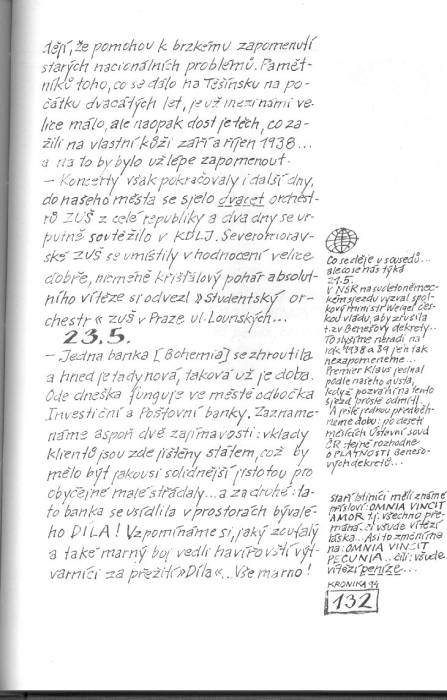 dějí, že pomohou k brzkému zapomenutí
starých nacionálních problémů. Pamět-
níků toho, co se dálo na Těšínsku na po-
čátku dvacátých let, je už mezi námi ve-
lice málo, ale naopak dost je těch, co za-
žili na vlastní kůži září a říjen 1938...
a na to by bylo už lépe zapomenout.
— Koncerty však pokračovaly i další dny,
do našeho města se sjelo dvacet orchest-
rů ZUŠ z celé republiky a dva dny se ur-
putně soutěžilo v KDLJ. Severomorav-
ské ZUŠ se umístily v hodnocení velice
dobře, nicméně křišťálový pohár absolut-
ního vítěze si odvezl »Studentský or-
chestr« ZUŠ v Praze ul. Lounských...
23.5.
— Jedna banka [Bohemia] se zhroutila
a hned je tady nová, taková už je doba.
Ode dneška funguje ve městě odbočka
Investiční a Poštovní banky. Zazname-
náme aspoň dvě zajímavosti: vklady
klientů jsou zde jištěny státem, což by
mělo být jakousi solidnější jistotou pro
obyčejné malé střádaly... a za druhé: ta-
to banka se usídlila v prostorách bývalé-
ho DÍLA! Vzpomínáme si, jaký zoufalý
a také marný boj vedli havířovští výt-
varníci za přežití »Díla«... Vše marno!
Co se děje u sousedů...
ale co se nás týká
21.5.
V NSR na sudetoněmec-
kém sjezdu vyzval spol-
kový ministr Weigel čes-
kou vládu, aby zrušila
t.zv Benešovy dekrety...
To slyšíme neradi na
rok 1938 a 39 jen tak
nezapomeneme...
Premier Klaus jednal
podle našeho gusta,
když pozvání na tento
sjezd prostě odmítl.
A ještě jednou předběh-
neme dobu: po deseti
měsících Ústavní soud
ČR. stejně rozhodne
o PLATNOSTI Benešo-
vých dekretů...
staří latiníci měli známé
přísloví: OMNIA VINCIT
AMOR
láska... Asi to změníme
na: OMNIA VINCIT
PECUNIA... čili: všude
vítězí peníze...
KRONIKA 94
132